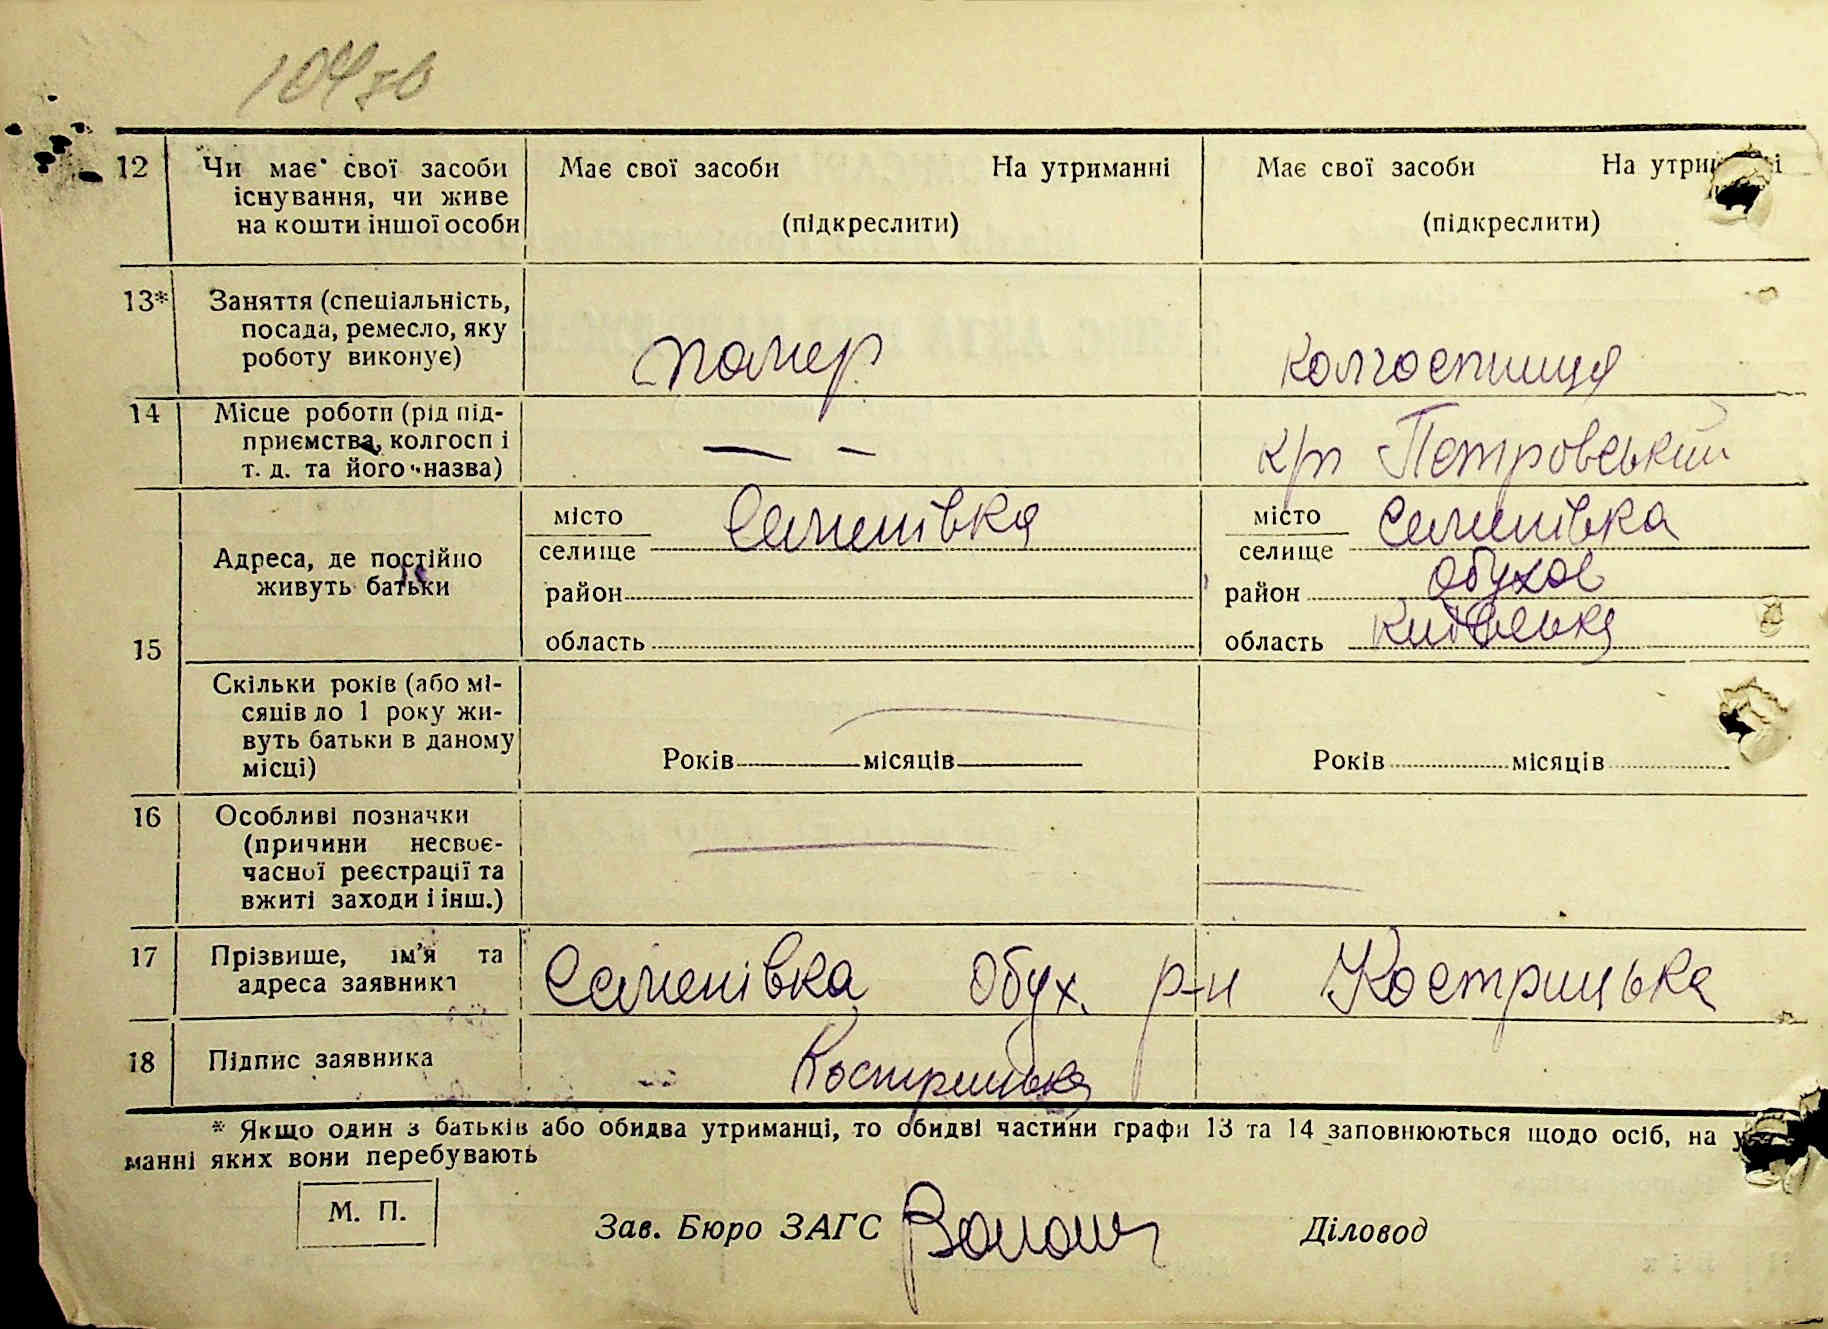 104 зв
12 Чи має свої засоби існування, чи живе на кошти іншої особи
Має свої засоби На утриманні
(підкреслити)
Має свої засоби
(підкреслити)
13* Заняття (спеціальність,
посада, ремесло, яку
роботу виконує)
помер
колгоспниця
14 Місце роботи (рід під-
приємства, колгосп і
т. д. та його назва)
— –
к/п Петровський
15
Адреса, де постійно
живуть батьки
місто
селище Семенівка
район
область
місто
селище Семенівка
район Обухов
область Київська
Скільки років (або мі-
сяців до 1 року жи-
вуть батьки в даному
місці)
Років місяців
Років місяців
16 Особливі позначки
(причини несвоє-
часної реєстрації та
вжиті заходи і інш.)
17 Прізвище, ім'я та
адреса заявника
Семенівка Обух. р-н Кострицька
18 Підпис заявника
Кострицька
* Якщо один з батьків або обидва утриманці, то обидві частини графи 13 та 14 заповнюються щодо осіб, на
манні яких вони перебувають
М. П.
Зав. Бюро ЗАГС
Діловод